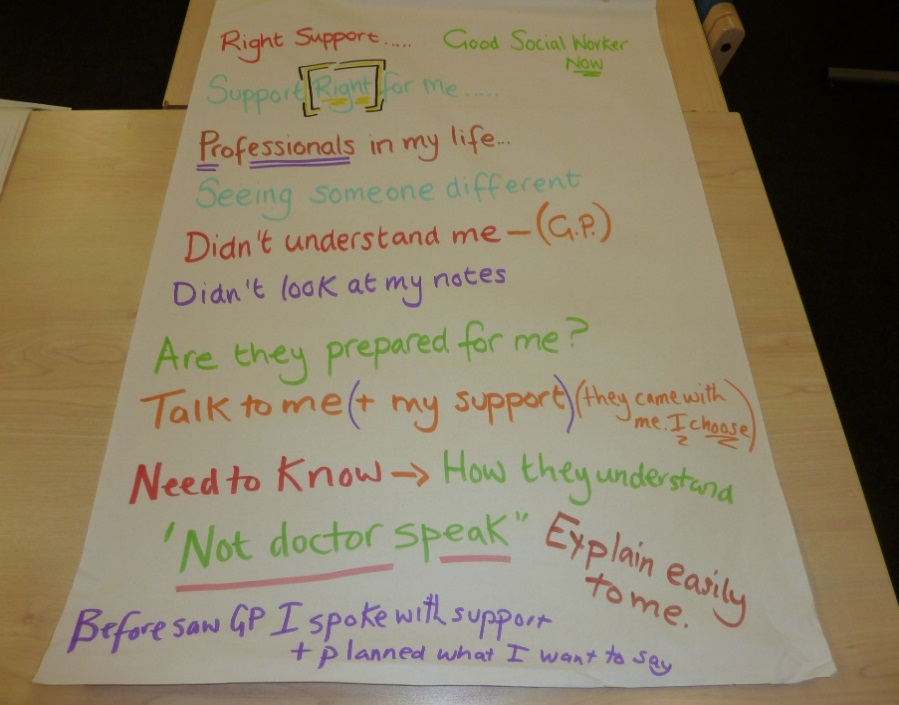 Right Support..... Good Social Worker
Now
Support Right for me.....
Professionals in my life...
Seeing someone different
Didn't understand me – (G.P.)
Didn't look at my notes
Are they prepared for me?
Talk to me (+ my support) (they came with
me. I choose)
Need to Know → How they understand
'Not doctor speak"
Explain easily
to me.
Before saw GP I spoke with support
+ planned what I want to say